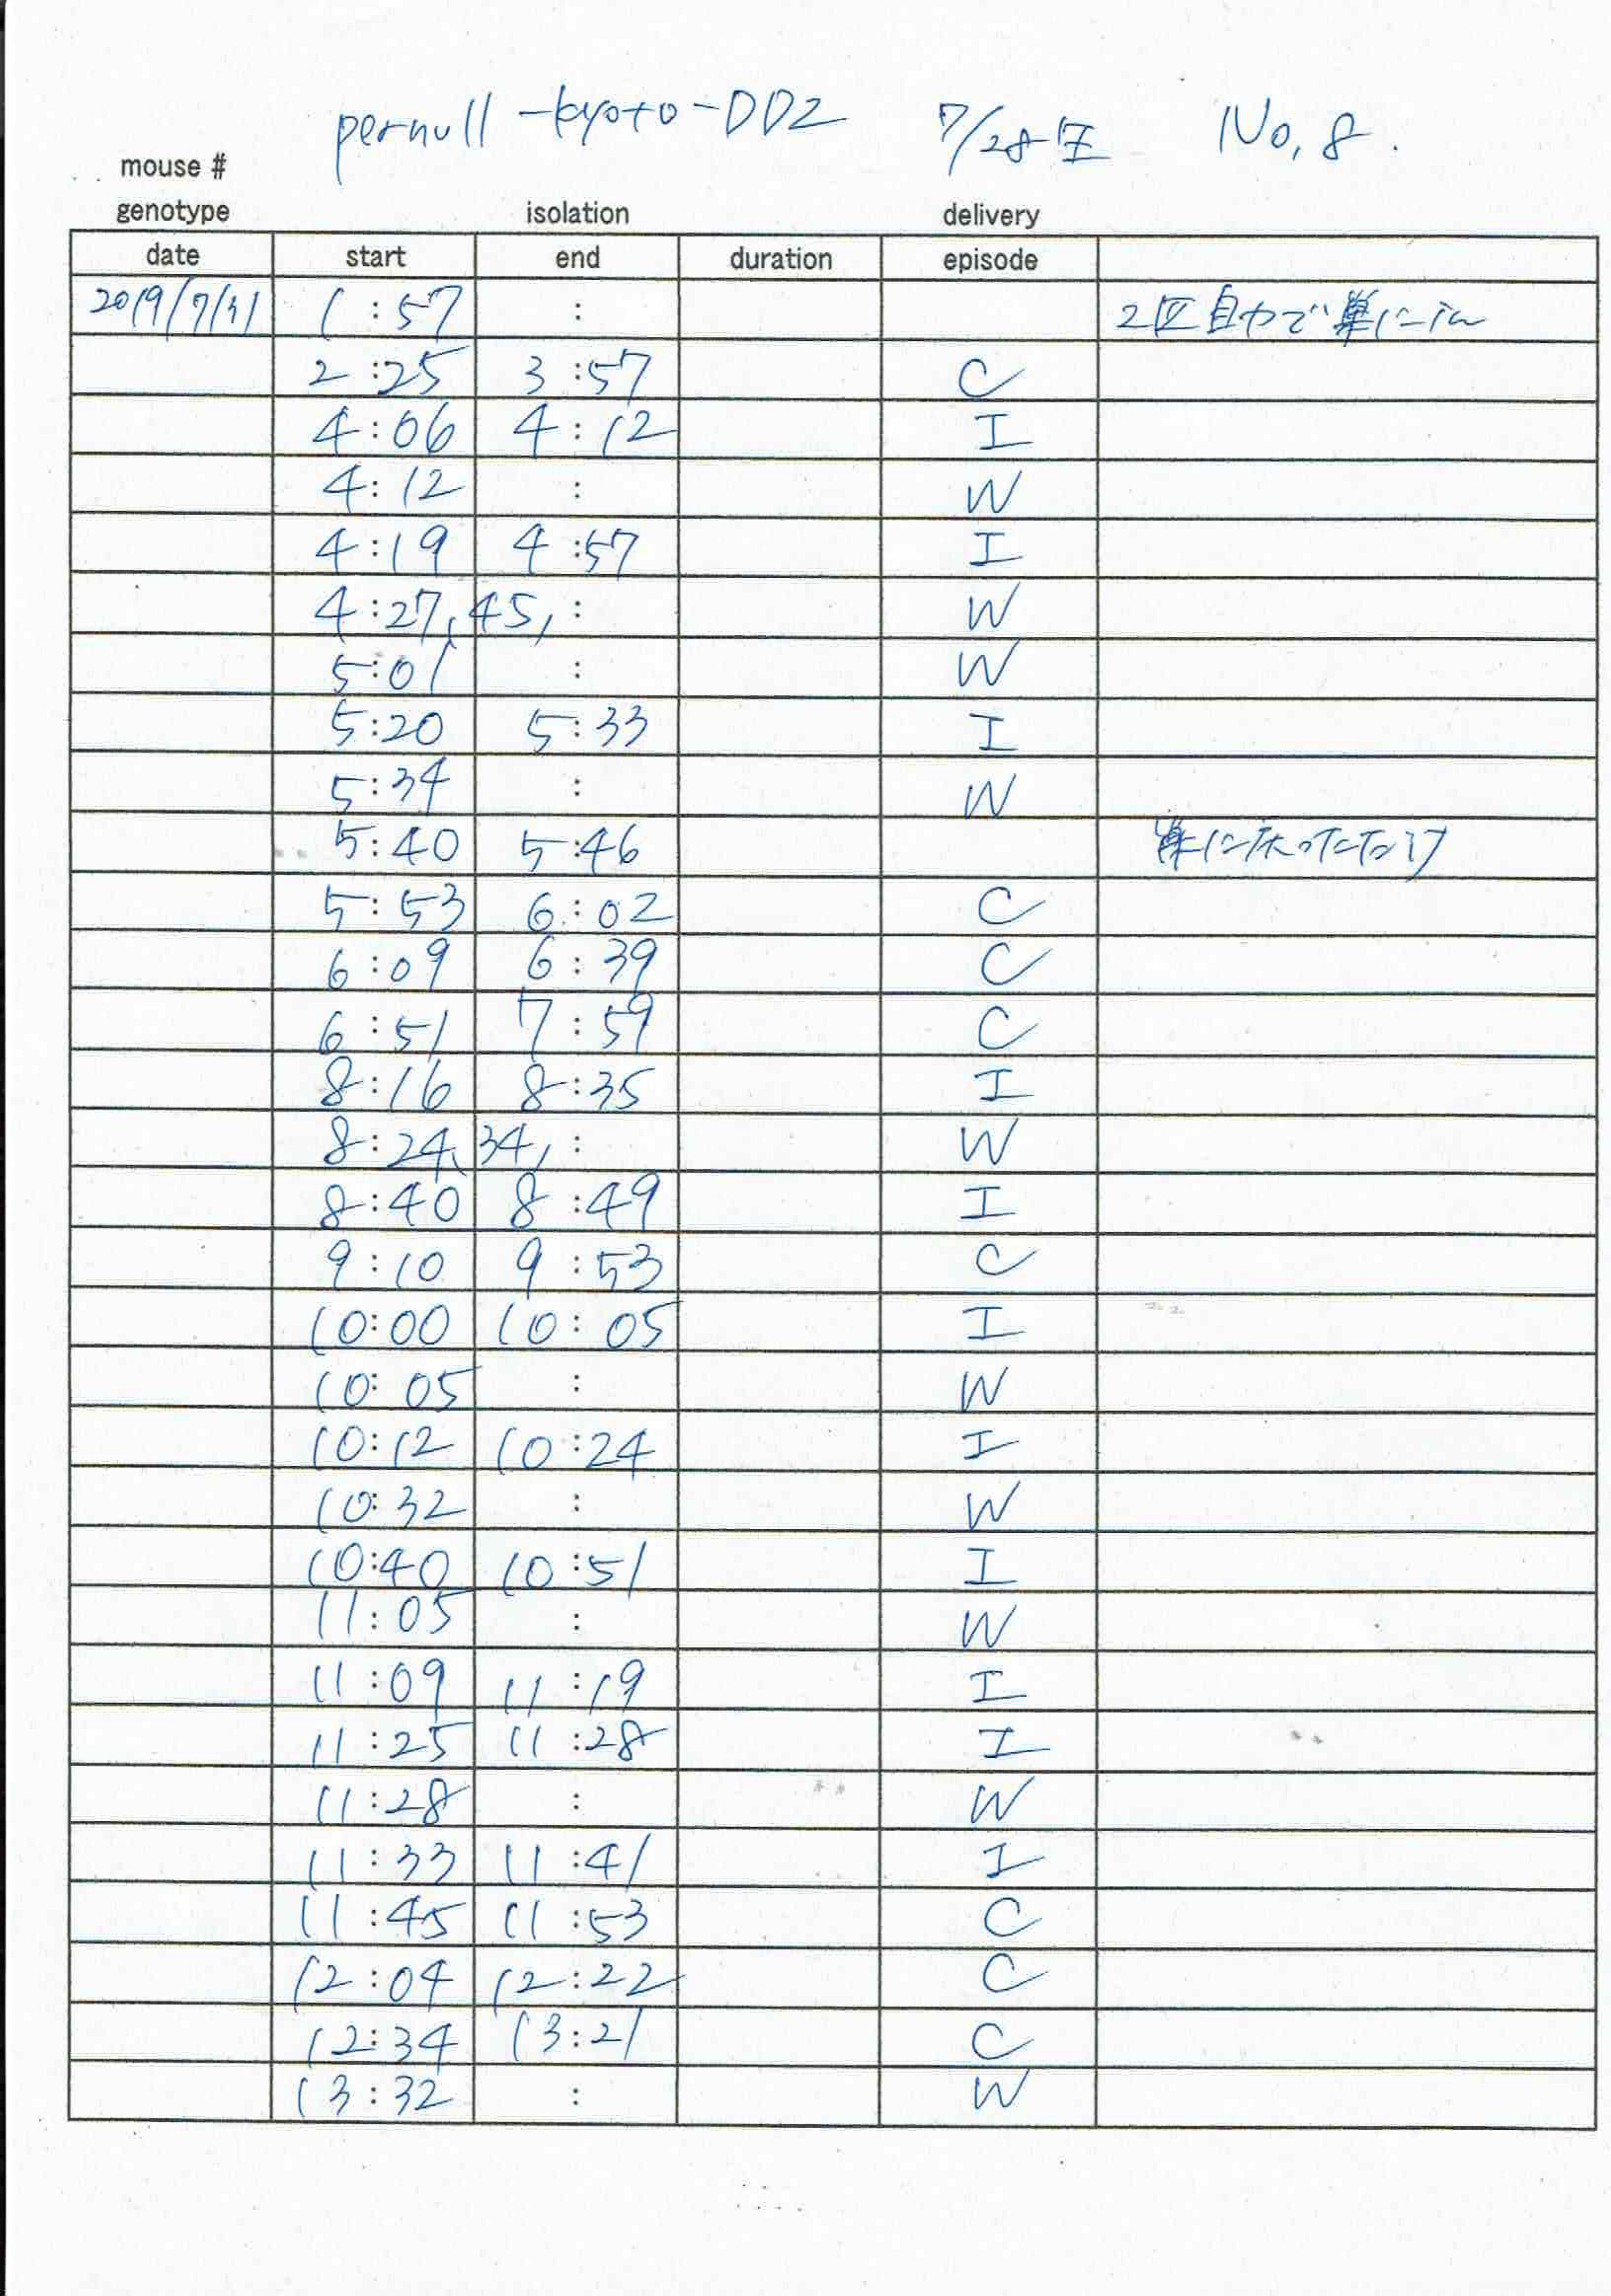 pernull-kyoto-DD2 7/28生 No. 8.
mouse #
genotype isolation delivery
date start end duration episode
2019/7/31 1:57 : 2匹自力で巣に
2:25 3:57 C
4:06 4:12 I
4:12 : W
4:19 4:57 I
4:27, 45, : W
5:01 : W
5:20 5:33 I
5:34 : W
5:40 5:46 巣に戻っただけ
5:53 6:02 C
6:09 6:39 C
6:51 7:59 C
8:16 8:35 I
8:24, 34, : W
8:40 8:49 I
9:10 9:53 C
10:00 10:05 I
10:05 : W
10:12 10:24 I
10:32 : W
10:40 10:51 I
11:05 : W
11:09 11:19 I
11:25 11:28 I
11:28 : W
11:33 11:41 I
11:45 11:53 C
12:04 12:22 C
12:34 13:21 C
13:32 : W